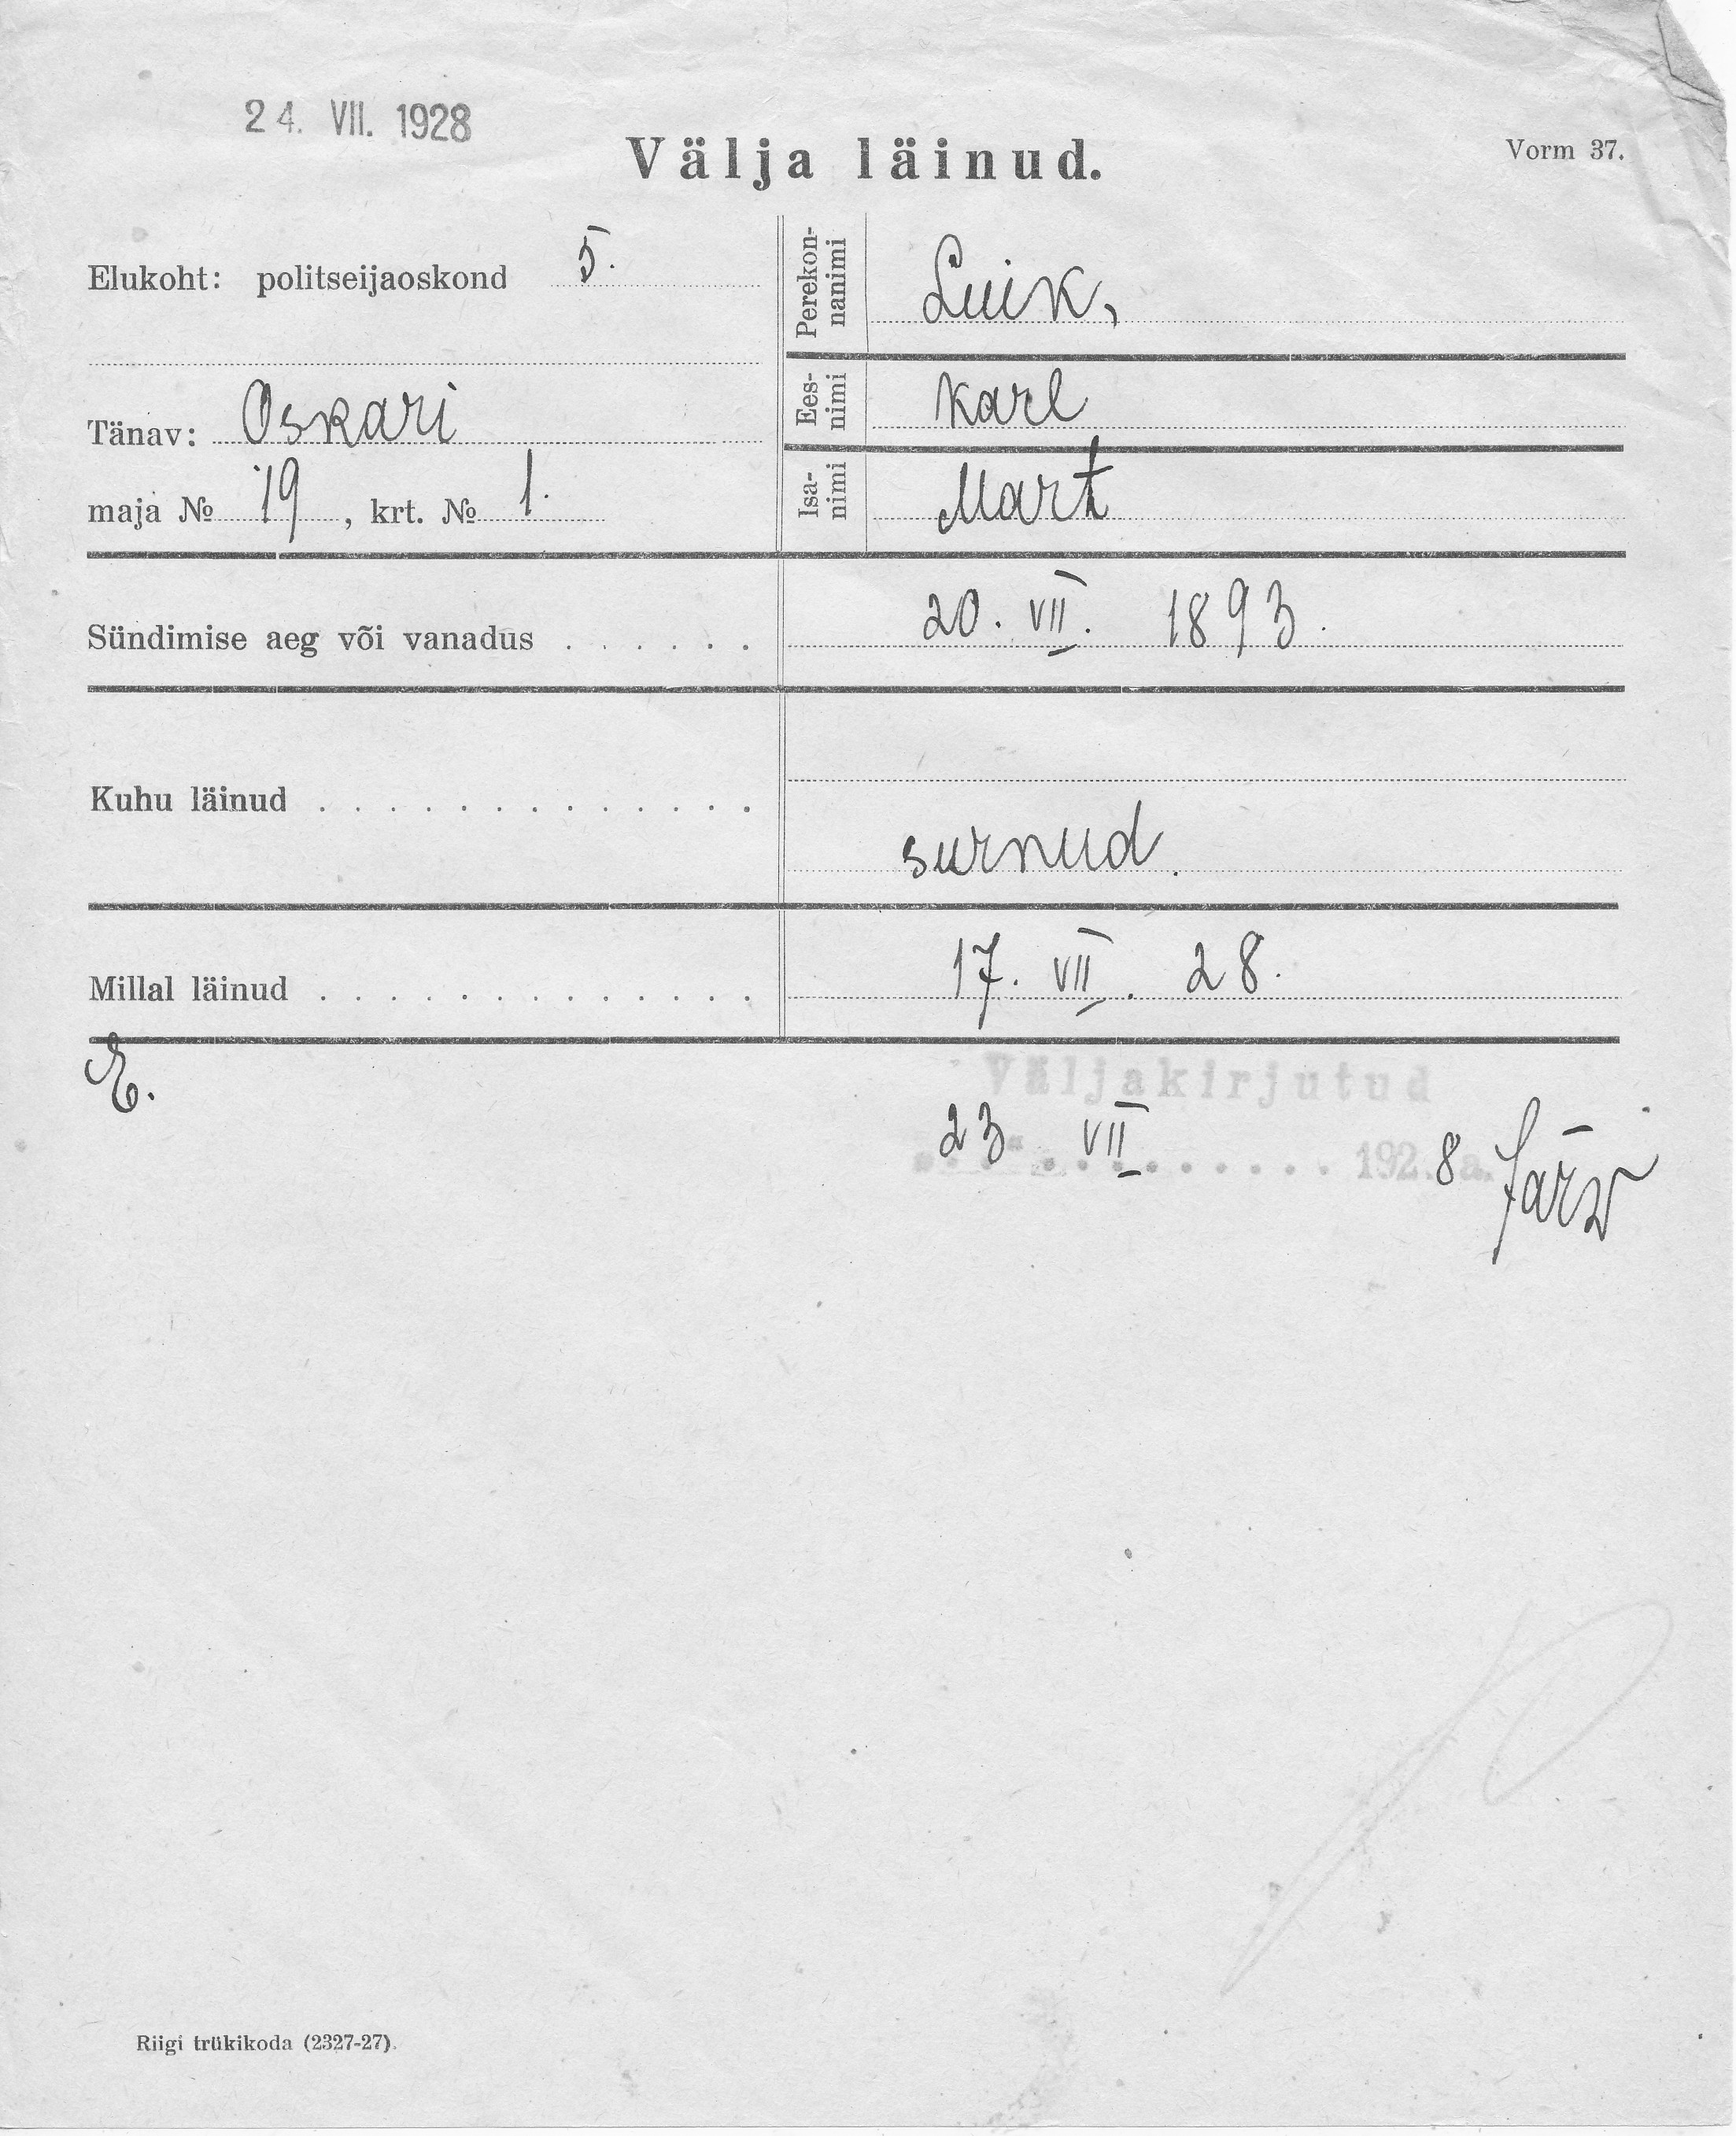 24. VII. 1928
Välja läinud.
Vorm 37.
Elukoht: politseijaoskond 5.
Tänav: Oskari
maja № 19, krt. № 1.
Perekon-
nanimi
Luik,
Ees-
nimi
Karl
Isa-
nimi
Mart
Sündimise aeg või vanadus . . . . . . 20. VII. 1893.
Kuhu läinud . . . . . . . . . . . . .
surnud.
Millal läinud . . . . . . . . . . . . . 17. VII. 28.
E.
Väljakirjutud
23 VII 192 8 a. Järv
Riigi trükikoda (2327-27).